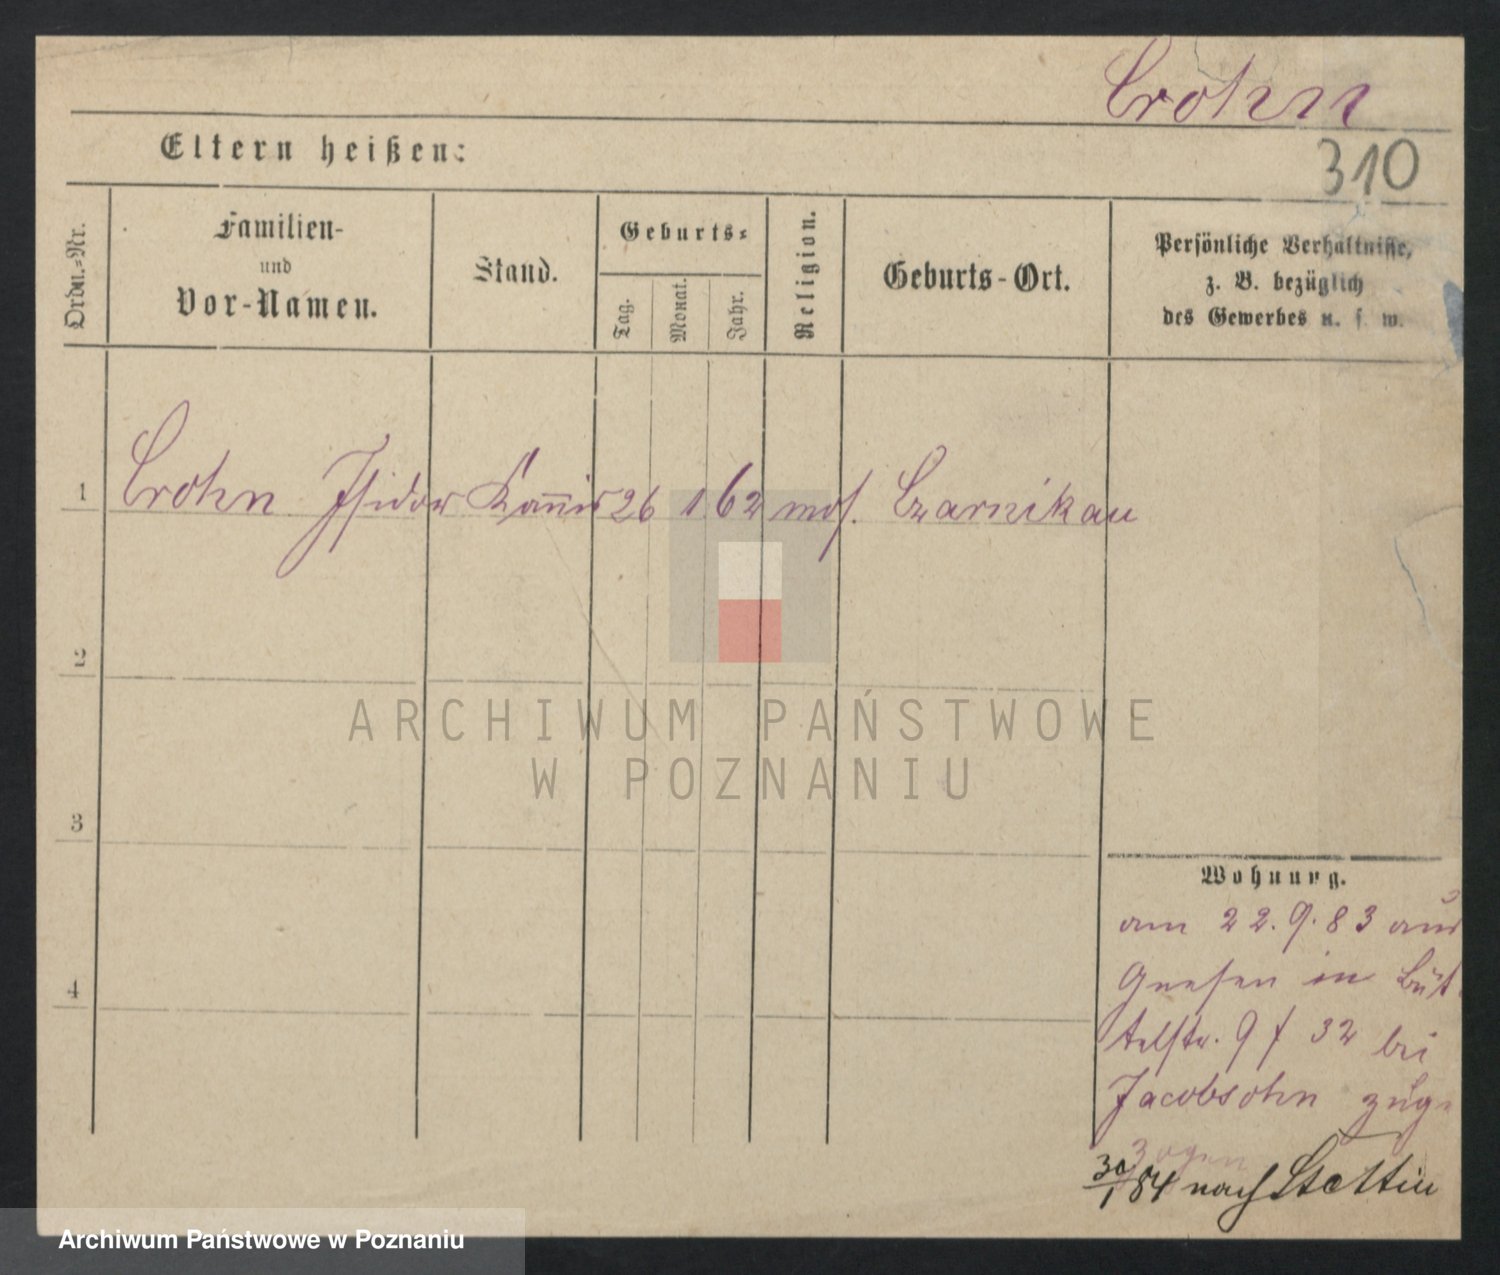 Crohn
310
Eltern heißen:
Ordn.=Nr.
Familien-
und
Vor-Namen.
Stand.
Geburts=
Tag.
Monat.
Jahr.
Religion.
Geburts-Ort.
Persönliche Verhältniße,
z. B. bezüglich
des Gewerbes u. s. w.
1 Crohn Isidor Kom̅is 26 1 62 mos. Czarnikau
2
3
4
Wohnung.
am 22. 9. 83 aus
Gnesen in Büt
telstr. 9 f 32 bei
Jacobsohn zuge
zogen
30/1 84 nach Stettin
ARCHIWUM PAŃSTWOWE
W POZNANIU
Archiwum Państwowe w Poznaniu